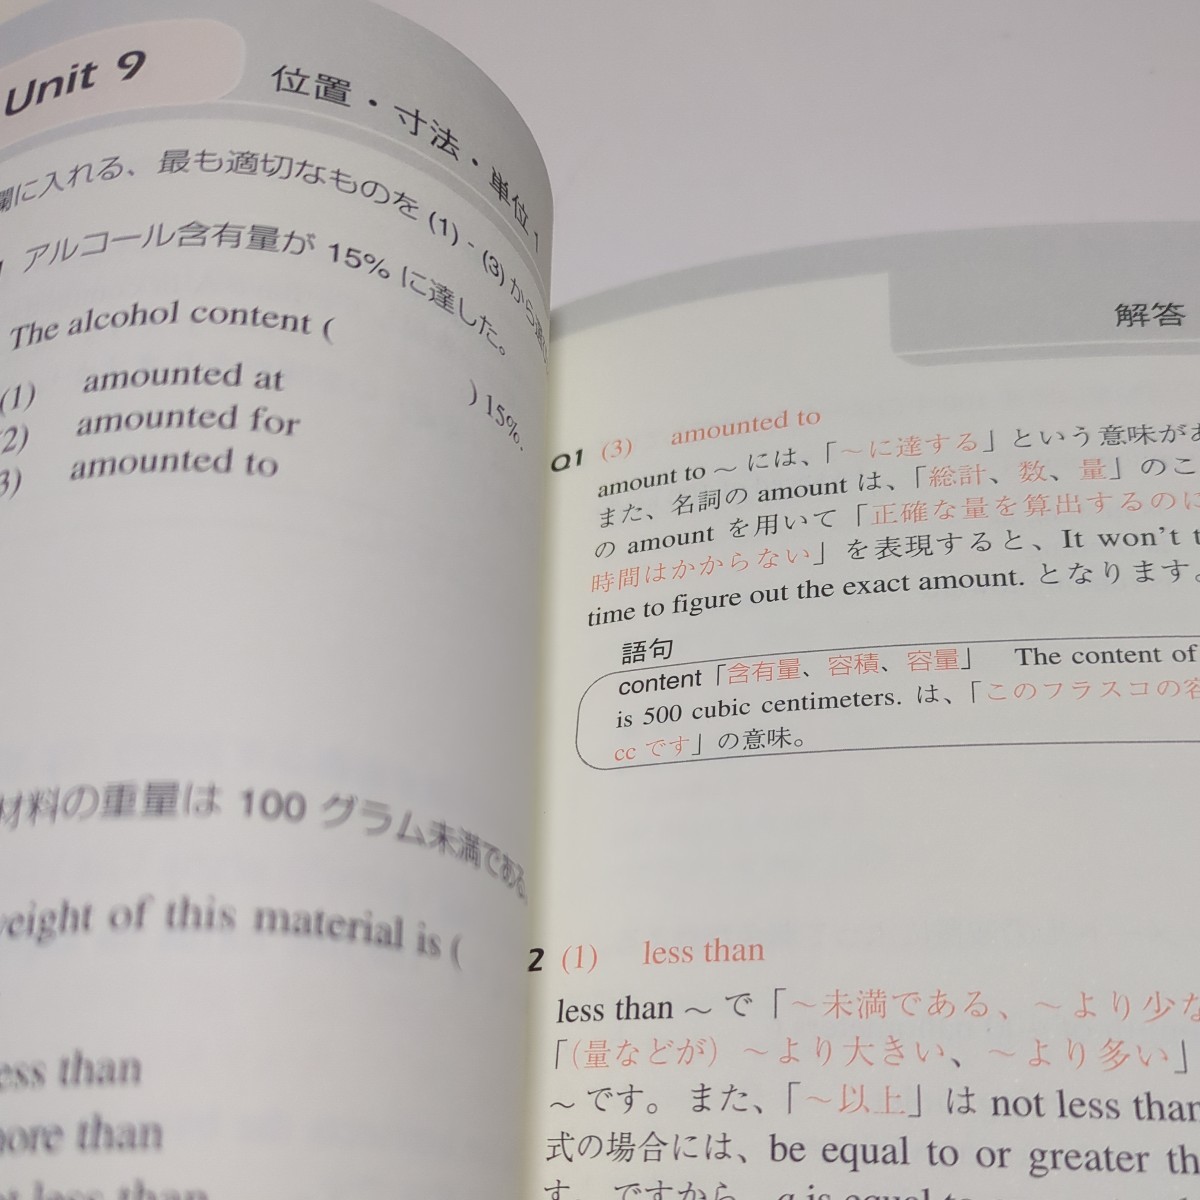 Unit 9
位置・寸法・単位 1
欄に入れる、最も適切なものを (1) - (3) から選
アルコール含有量が 15% に達した。
The alcohol content (
) 15%.
(1) amounted at
(2) amounted for
3) amounted to
材料の重量は 100 グラム未満である。
eight of this material is (
ess than
ore than
less than
解答
Q1 (3) amounted to
amount to ～ には、「～に達する」という意味があ
また、名詞の amount は、「総計、数、量」のこ
の amount を用いて「正確な量を算出するのに
時間はかからない」を表現すると、It won't t
time to figure out the exact amount. となります。
語句
content「含有量、容積、容量」 The content of
is 500 cubic centimeters. は、「このフラスコの容
cc です」の意味。
2 (1) less than
less than ～ で「～未満である、～より少な
「(量などが) ～より大きい、～より多い」
～です。また、「～以上」は not less than
式の場合には、be equal to or greater th
す。ですから、a is equal to